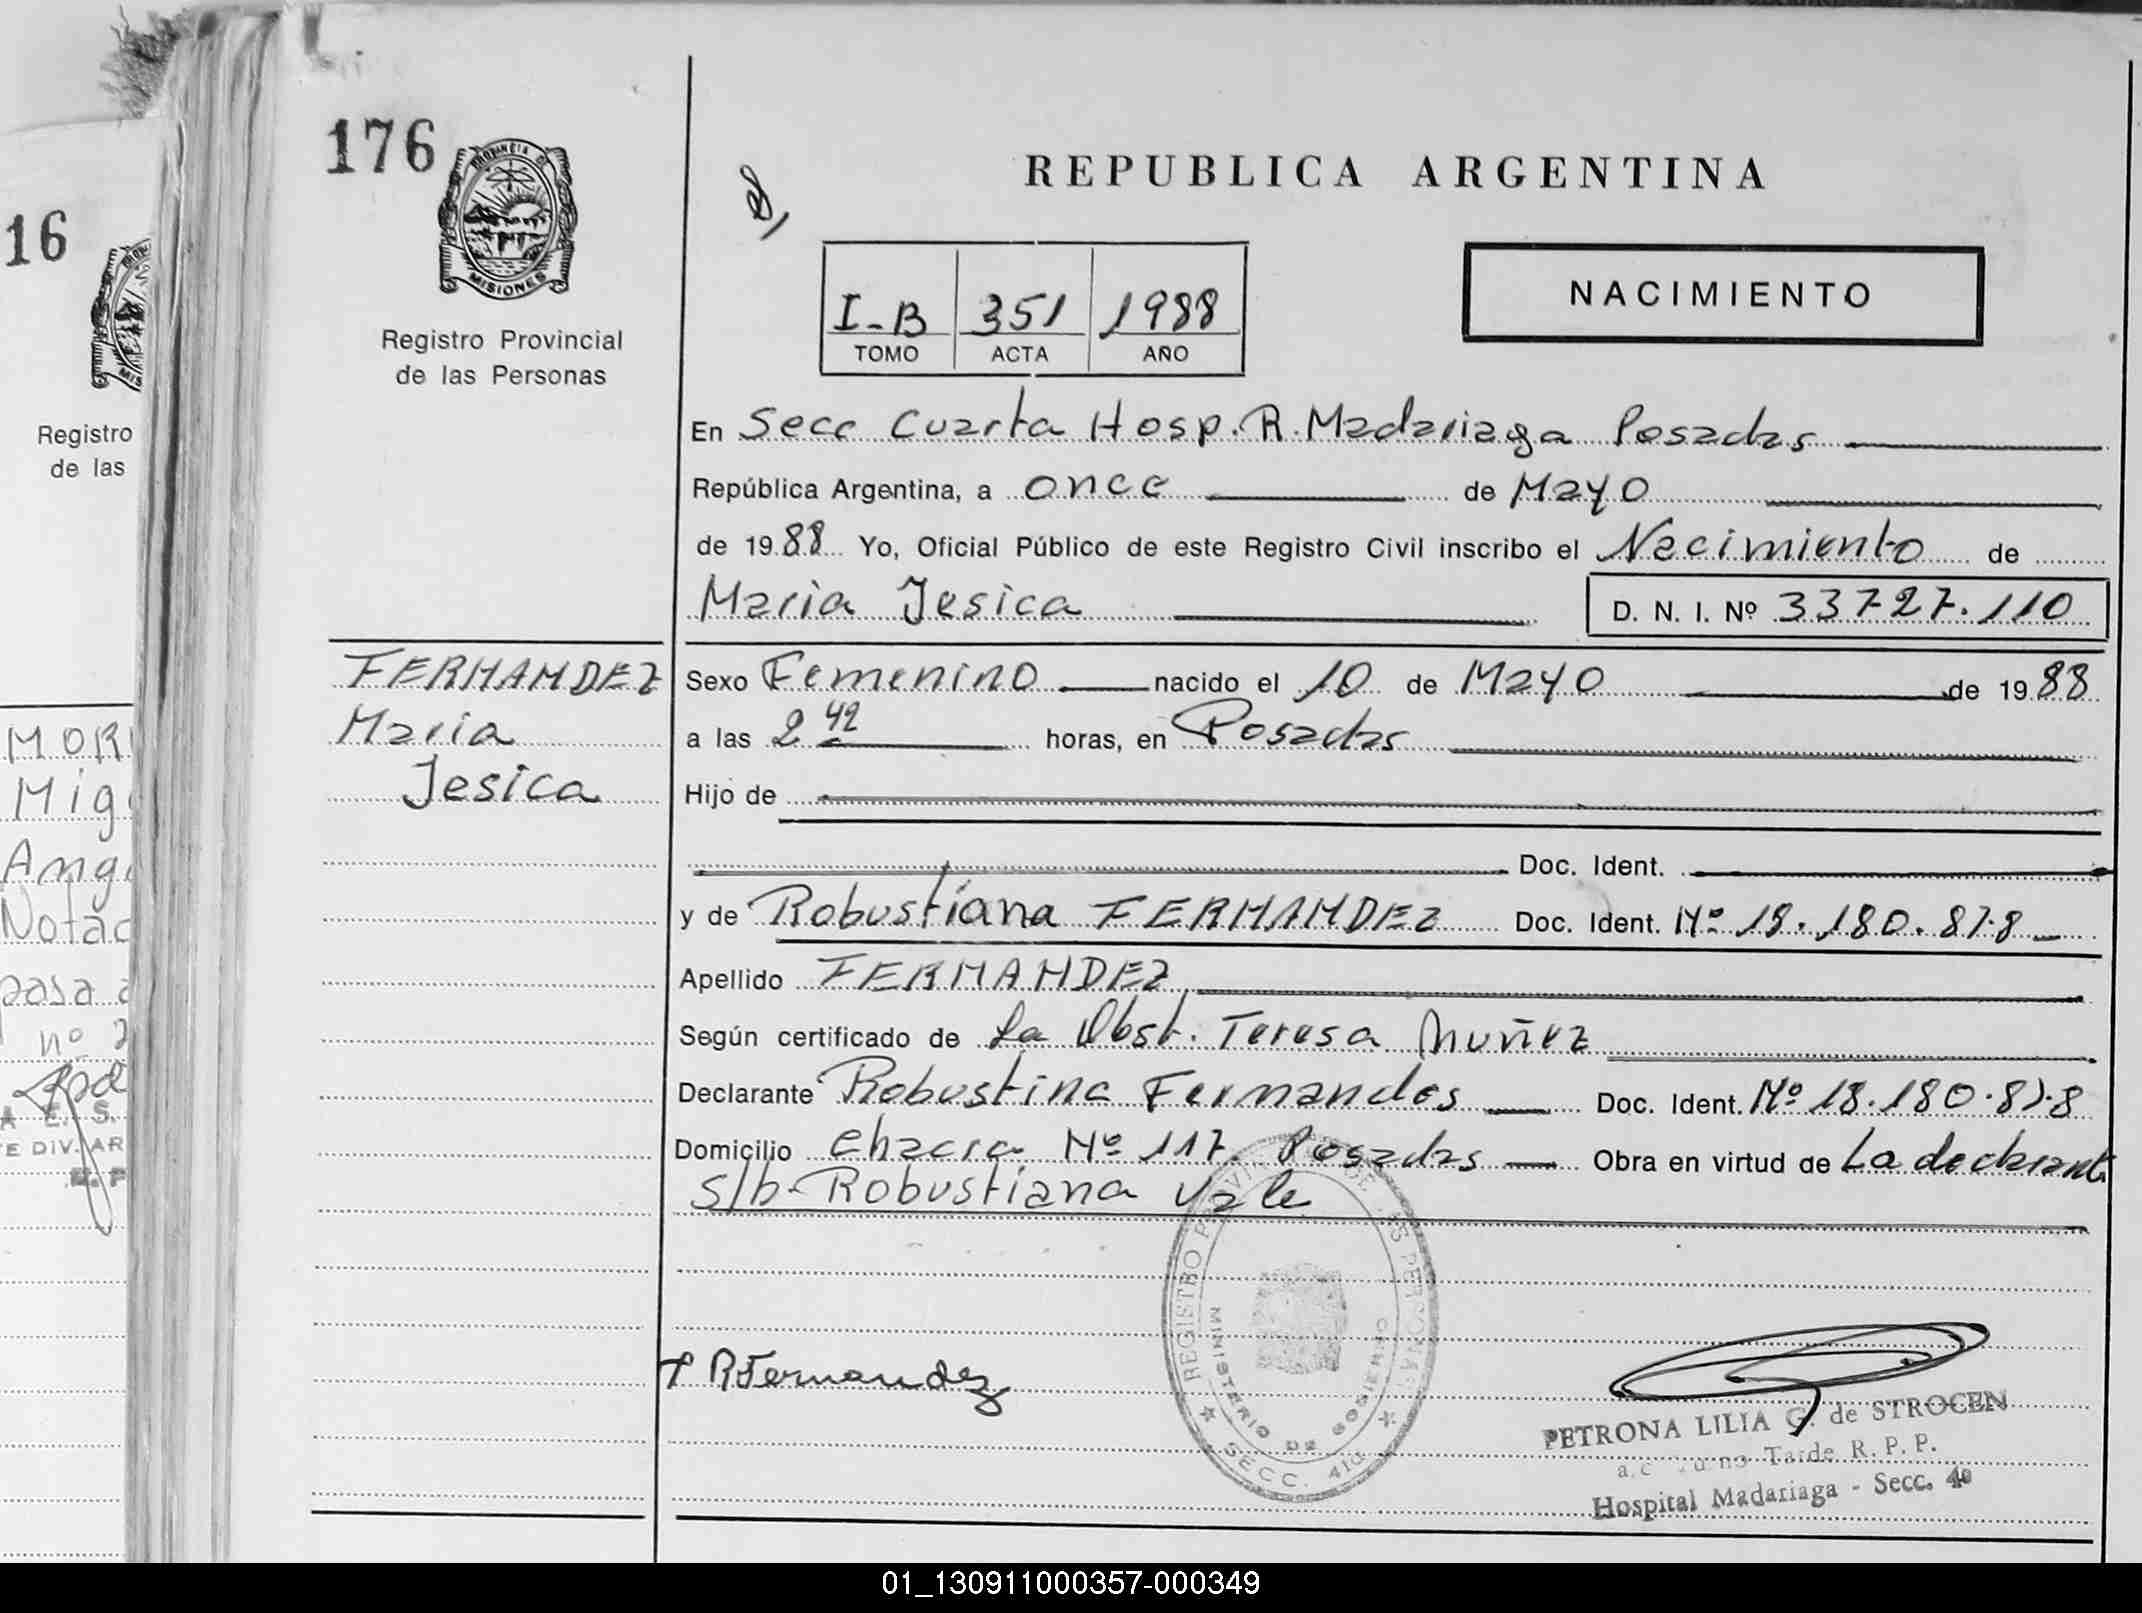 176
PROVINCIA DE
MISIONES
Registro Provincial
de las Personas
16
MIS
Registro
de las
REPUBLICA ARGENTINA
NACIMIENTO
I-B 351 1988
TOMO ACTA AÑO
En Secc Cuarta Hosp. R. Madariaga Posadas
República Argentina, a once de Mayo
de 1988 Yo, Oficial Público de este Registro Civil inscribo el Nacimiento de
Maria Jesica D. N. I. Nº 33727.110
FERNANDEZ
Maria
Jesica
Sexo Femenino nacido el 10 de Mayo de 1988
a las 2 42 horas, en Posadas
Hijo de
Doc. Ident.
y de Robustiana FERNANDEZ Doc. Ident. Nº 18.180.878
Apellido FERNANDEZ
Según certificado de La Obst. Teresa Nuñez
Declarante Robustina Fernandes Doc. Ident. Nº 18.180.878
Domicilio Chacra Nº 117. Posadas Obra en virtud de La declarante
S/b-Robustiana Vale
MOR
Mig
Ang
Notac
pasa a
nº 2
E. S.
E DIV. AR
R Fernandez
REGISTRO PROVINCIAL DE LAS PERSONAS
MINISTERIO DE GOBIERNO
SECC. 4ta
PETRONA LILIA G. de STROCEN
Tarde R. P. P.
Hospital Madariaga - Secc. 4a
01_130911000357-000349